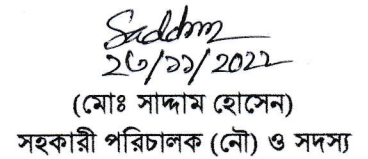 Saddam
২৩/১১/2022
(মোঃ সাদ্দাম হোসেন)
সহকারী পরিচালক (নৌ) ও সদস্য